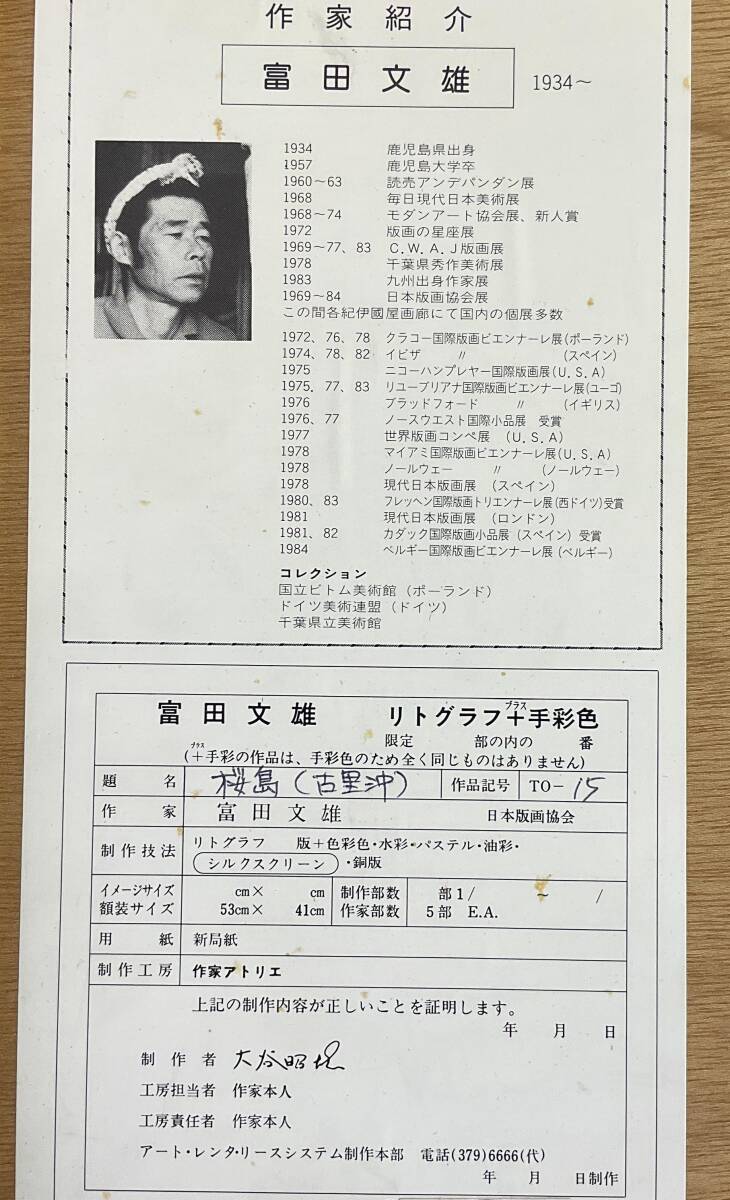 作家紹介
富田文雄 1934〜
1934 鹿児島県出身
1957 鹿児島大学卒
1960〜63 読売アンデパンダン展
1968 毎日現代日本美術展
1968〜74 モダンアート協会展、新人賞
1972 版画の星座展
1969〜77、83 C.W.A.J版画展
1978 千葉県秀作美術展
1983 九州出身作家展
1969〜84 日本版画協会展
この間各紀伊國屋画廊にて国内の個展多数
1972、76、78 クラコー国際版画ビエンナーレ展(ポーランド)
1974、78、82 イビザ 〃 (スペイン)
1975 ニコーハンプレヤー国際版画展(U.S.A)
1975、77、83 リユーブリアナ国際版画ビエンナーレ展(ユーゴ)
1976 ブラッドフォード 〃 (イギリス)
1976、77 ノースウエスト国際小品展 受賞
1977 世界版画コンペ展 (U.S.A)
1978 マイアミ国際版画ビエンナーレ展(U.S.A)
1978 ノールウェー 〃 (ノールウェー)
1978 現代日本版画展 (スペイン)
1980、83 フレッヘン国際版画トリエンナーレ展(西ドイツ)受賞
1981 現代日本版画展 (ロンドン)
1981、82 カダック国際版画小品展 (スペイン) 受賞
1984 ベルギー国際版画ビエンナーレ展 (ベルギー)
コレクション
国立ビトム美術館 (ポーランド)
ドイツ美術連盟 (ドイツ)
千葉県立美術館
富田文雄 リトグラフ+プラス手彩色
限定 部の内の 番
(+プラス手彩の作品は、手彩色のため全く同じものはありません)
題名 桜島(古里沖) 作品記号 TO-15
作家 富田文雄 日本版画協会
制作技法 リトグラフ 版+色彩色・水彩・パステル・油彩・
シルクスクリーン・銅版
イメージサイズ cm× cm 制作部数 部1/ 〜 /
額装サイズ 53cm× 41cm 作家部数 5部 E.A.
用紙 新局紙
制作工房 作家アトリエ
上記の制作内容が正しいことを証明します。
年 月 日
制作者
工房担当者 作家本人
工房責任者 作家本人
アート・レンタ・リースシステム制作本部 電話(379)6666(代)
年 月 日制作